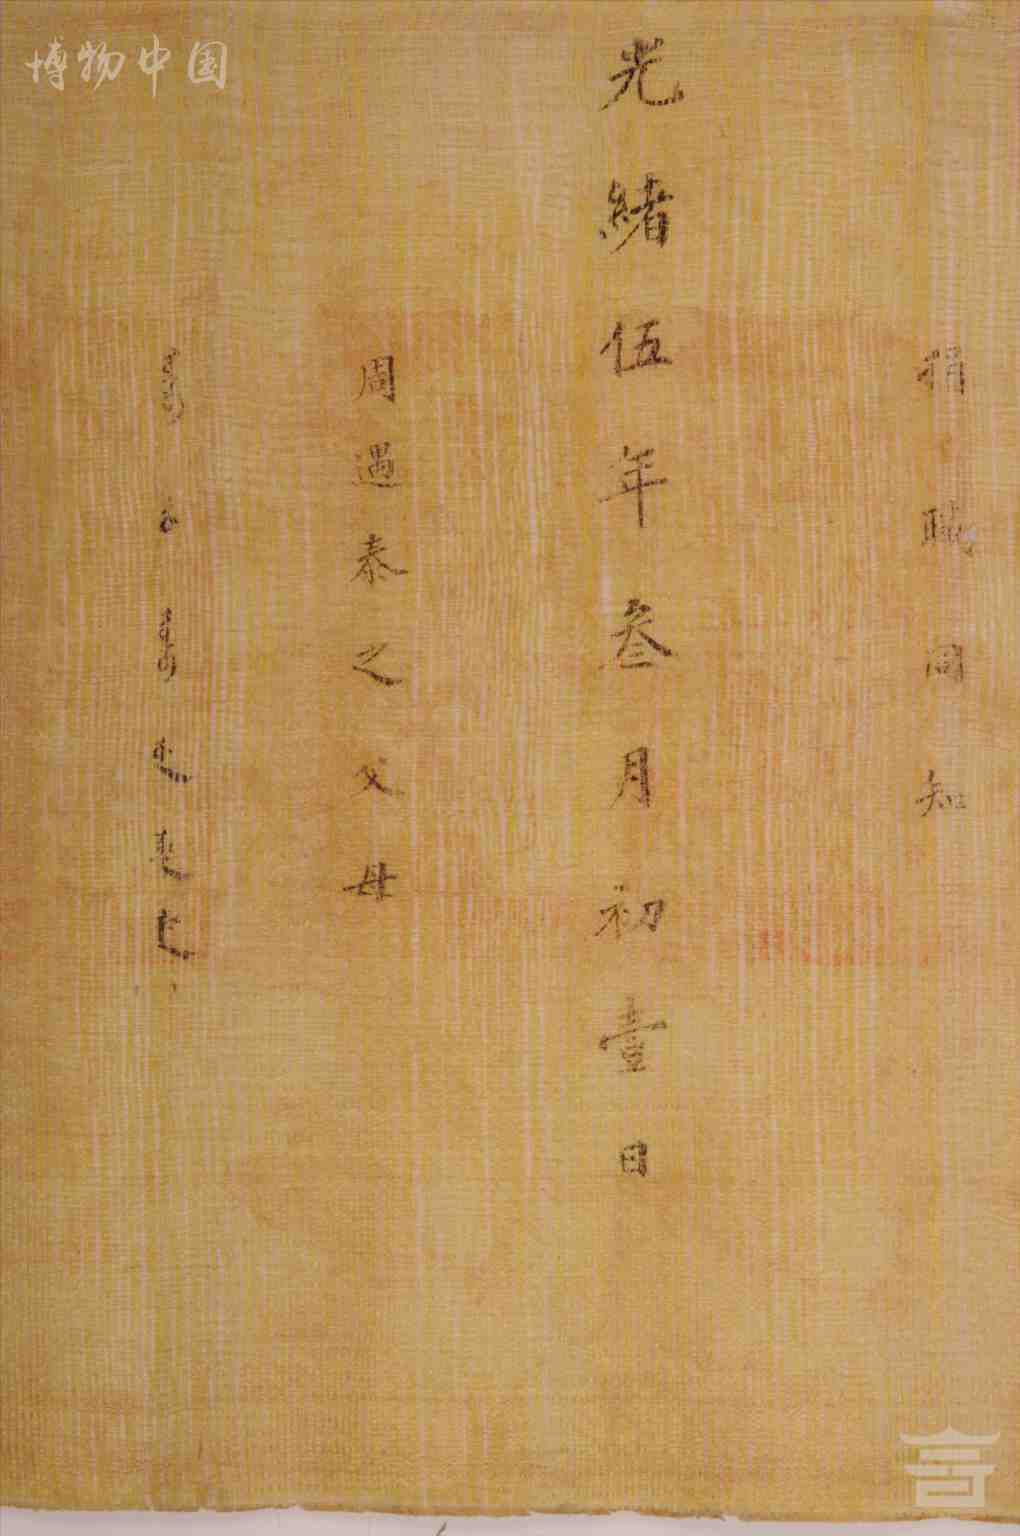 捐職同知
光緒伍年叁月初壹日
周遇泰之父母
博物中国